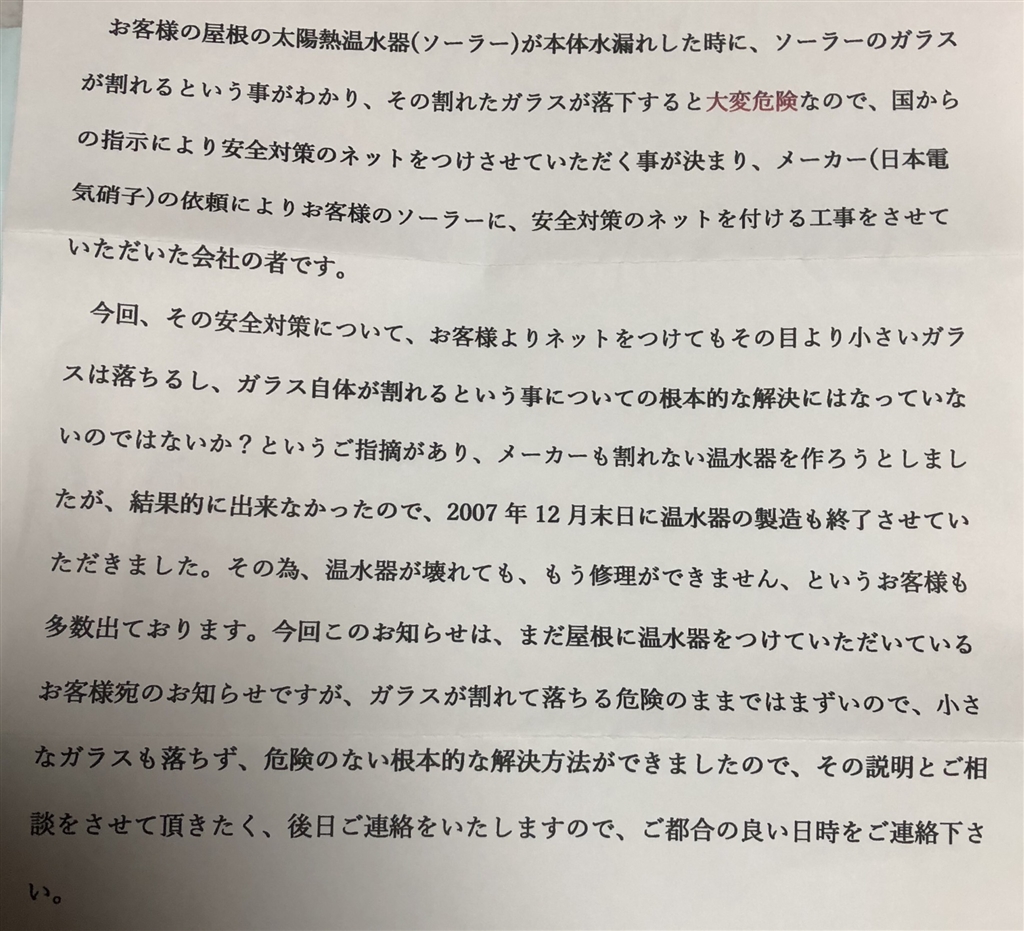 お客様の屋根の太陽熱温水器(ソーラー)が本体水漏れした時に、ソーラーのガラス
が割れるという事がわかり、その割れたガラスが落下すると大変危険なので、国から
の指示により安全対策のネットをつけさせていただく事が決まり、メーカー(日本電
気硝子)の依頼によりお客様のソーラーに、安全対策のネットを付ける工事をさせて
いただいた会社の者です。
今回、その安全対策について、お客様よりネットをつけてもその目より小さいガラ
スは落ちるし、ガラス自体が割れるという事についての根本的な解決にはなっていな
いのではないか？というご指摘があり、メーカーも割れない温水器を作ろうとしまし
たが、結果的に出来なかったので、2007 年 12 月末日に温水器の製造も終了させてい
ただきました。その為、温水器が壊れても、もう修理ができません、というお客様も
多数出ております。今回このお知らせは、まだ屋根に温水器をつけていただいている
お客様宛のお知らせですが、ガラスが割れて落ちる危険のままではまずいので、小さ
なガラスも落ちず、危険のない根本的な解決方法ができましたので、その説明とご相
談をさせて頂きたく、後日ご連絡をいたしますので、ご都合の良い日時をご連絡下さ
い。